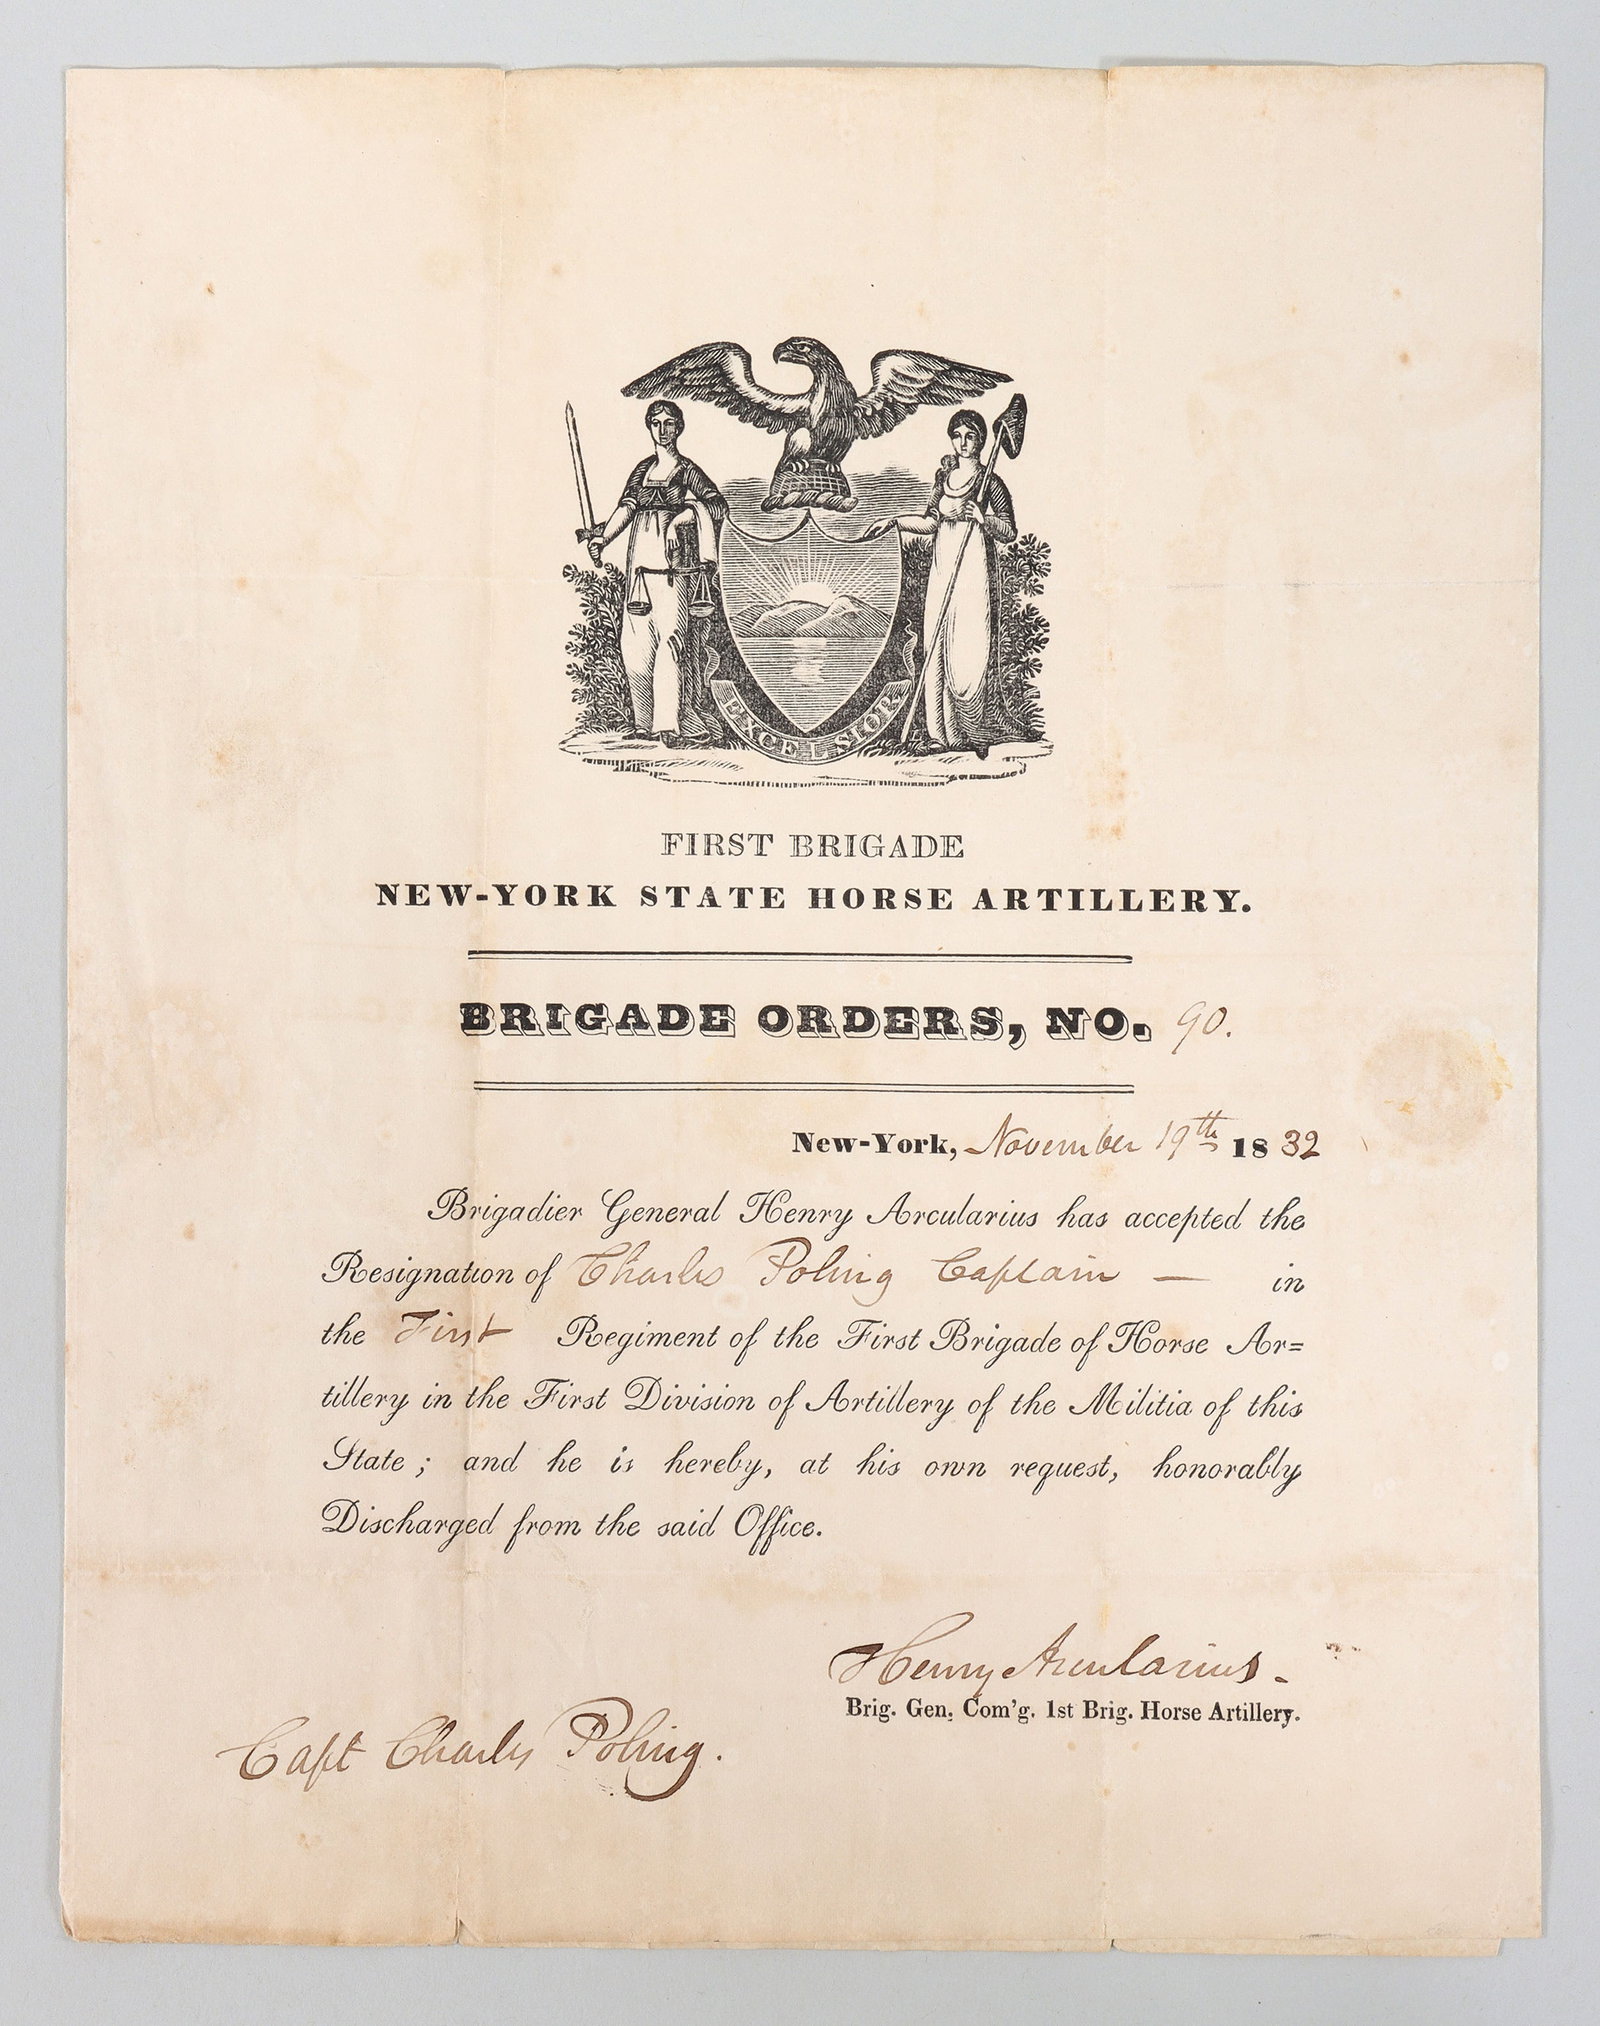 EXCELSIOR
FIRST BRIGADE
NEW-YORK STATE HORSE ARTILLERY.
BRIGADE ORDERS, NO. 90.
New-York, November 19th 1832
Brigadier General Henry Arcularius has accepted the
Resignation of Charles Poling Captain — in
the First Regiment of the First Brigade of Horse Ar=
tillery in the First Division of Artillery of the Militia of this
State ; and he is hereby, at his own request, honorably
Discharged from the said Office.
Henry Arcularius -
Brig. Gen. Com'g. 1st Brig. Horse Artillery.
Capt Charles Poling.